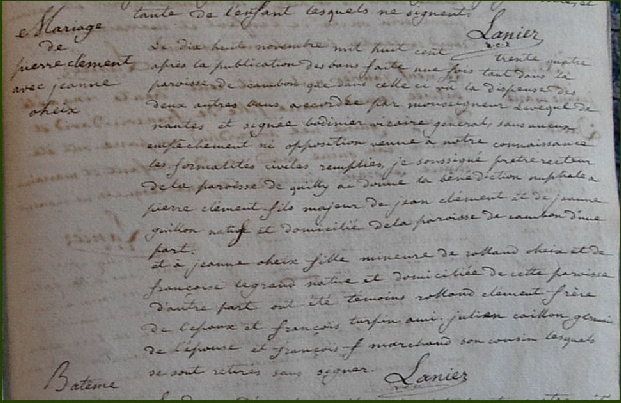 tante de l'enfant lesquels ne signent.
Lanier
r.c.r
Mariage
de
pierre clement
avec jeanne
oheix
Le dix huit novembre mil huit cent trente quatre
après la publication des bans faite une fois tant dans la
paroisse de cambon que dans celle ci vu la dispense des
deux autres bans accordée par monseigneur Leveque de
nantes et signée bodinier vicaire general, sans aucun
empêchement ni opposition venue à notre connaissance
les formalités civiles remplies, je soussigné prêtre recteur
de la paroisse de quilly ai donné la bénédiction nuptiale a
pierre clement fils majeur de jean clement et de jeanne
guihon natif et domicilié de la paroisse de cambon d'une
part.
et à jeanne oheix fille mineure de rolland oheix et de
françoise legrand native et domiciliée de cette paroisse
d'autre part ont été temoins rolland clement frère
de l'epoux et françois turpin ami. julien caillon germain
de l'epouse et françois marchand son cousin lesquels
se sont retirés sans signer.
Lanier
Bateme